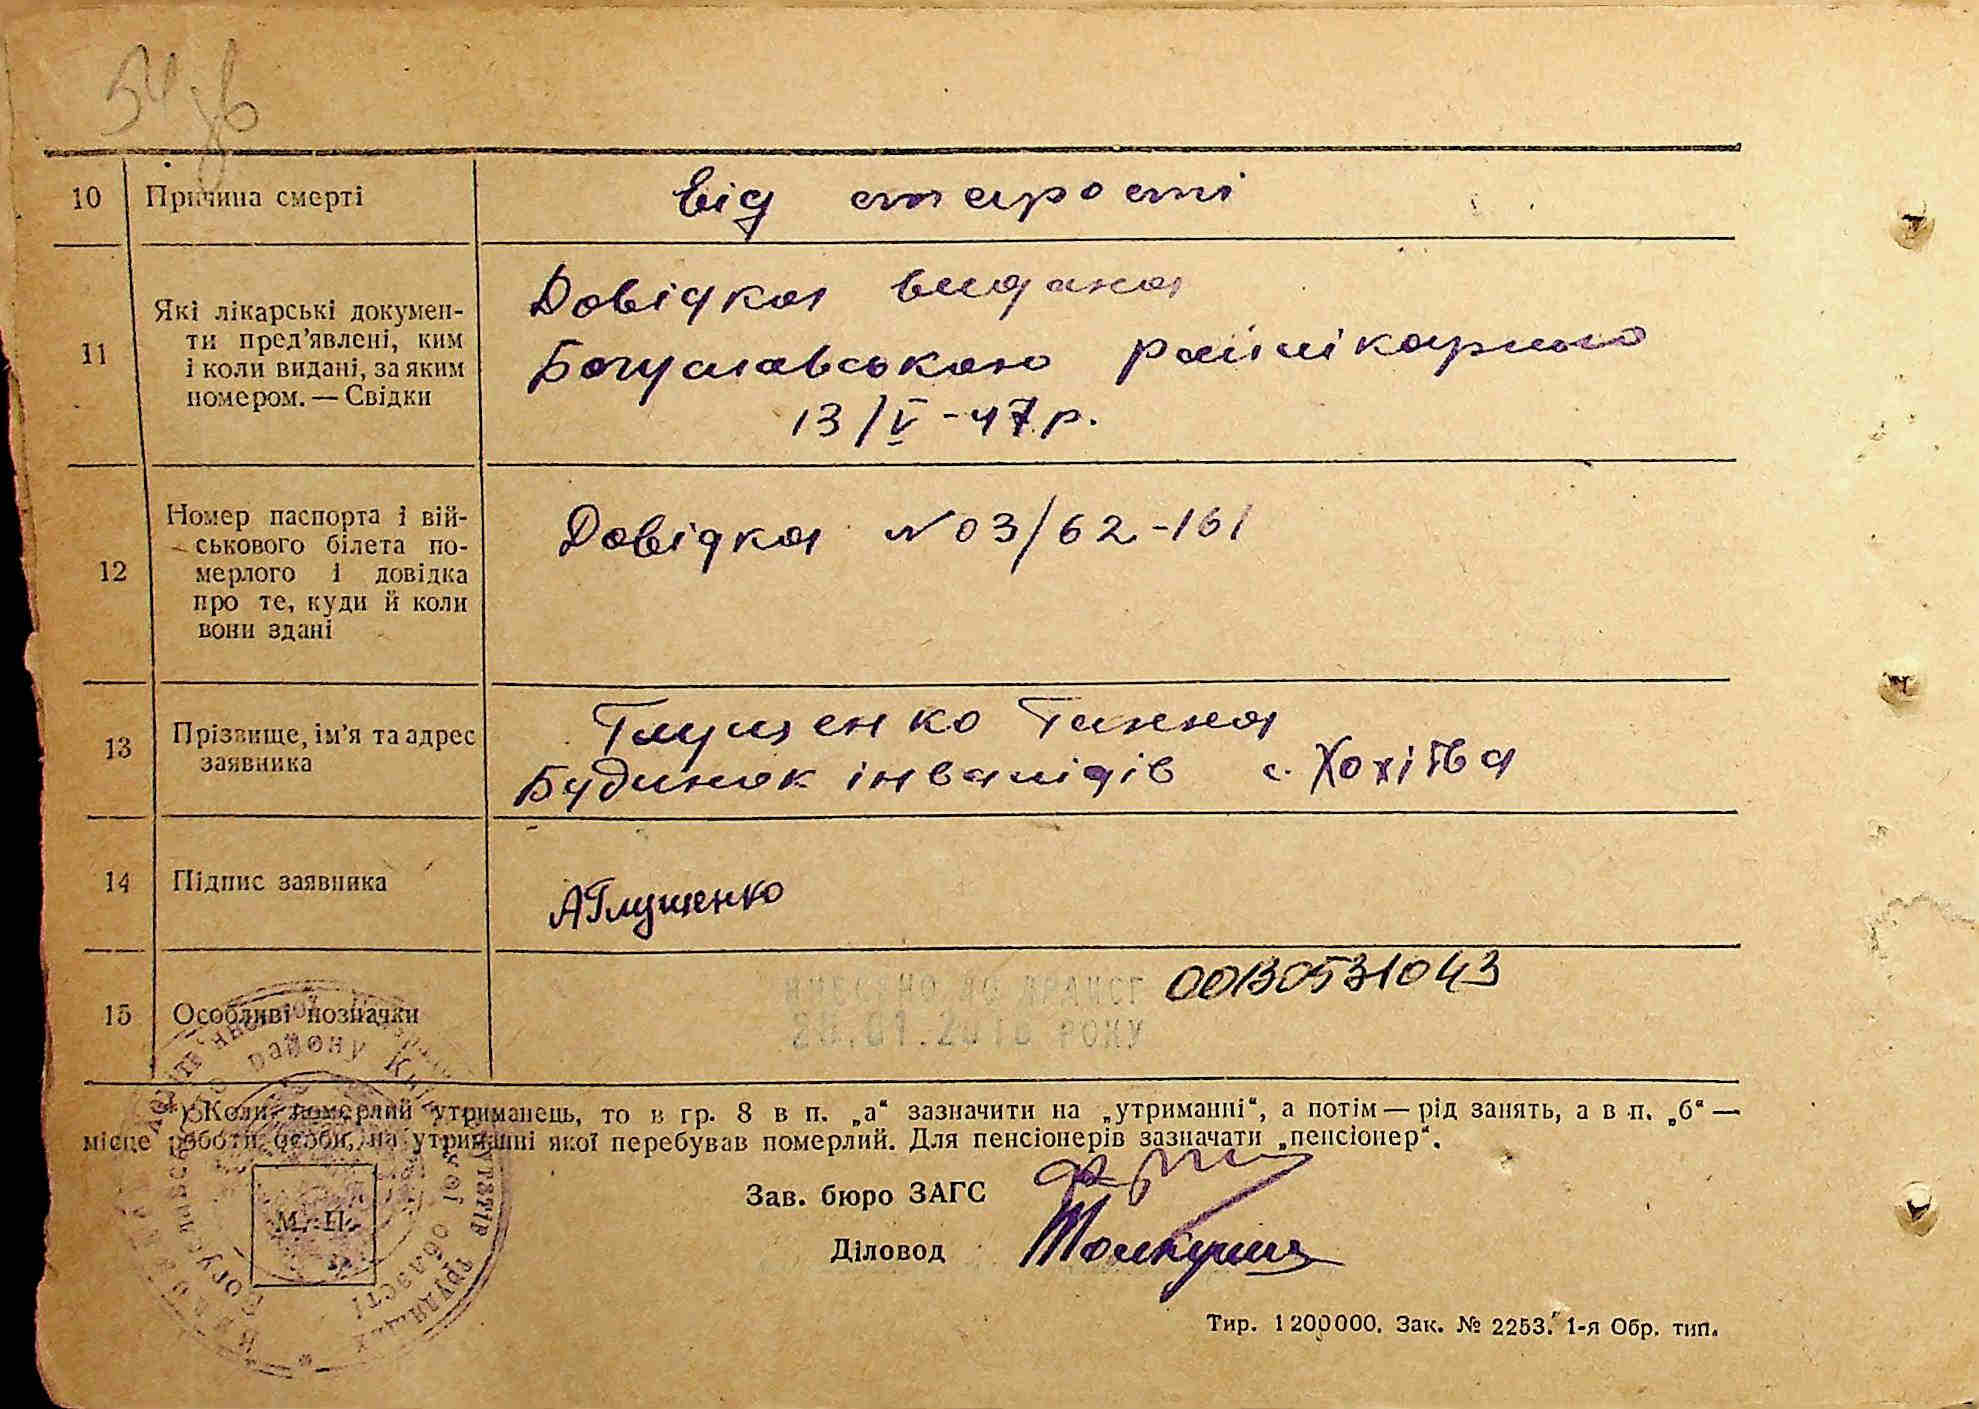 54
10 Причина смерті Від старості
11 Які лікарські докумен-
ти пред’явлені, ким
і коли видані, за яким
номером. — Свідки
Довідка видана
Богуславською райлікарнею
13/V - 47 р.
12 Номер паспорта і вій-
ськового білета по-
мерлого і довідка
про те, куди й коли
вони здані
Довідка №03/62-161
13 Прізвище, ім’я та адрес
заявника
Глущенко Ганна
Будинок інвалідів с. Хохітва
14 Підпис заявника АГлущенко
15 Особливі позначки
ВНЕСЕНО ДО ДРАЦСГ 00130531043
РОКУ
*) Коли померлий утриманець, то в гр. 8 в п. „а“ зазначити на „утриманні“, а потім — рід занять, а в п. „б“ —
місце роботи особи, на утриманні якої перебував померлий. Для пенсіонерів зазначати „пенсіонер“.
Зав. бюро ЗАГС
М. П.
Діловод
району
області
трудящих
Тир. 1 200 000. Зак. № 2253. 1-я Обр. тип.